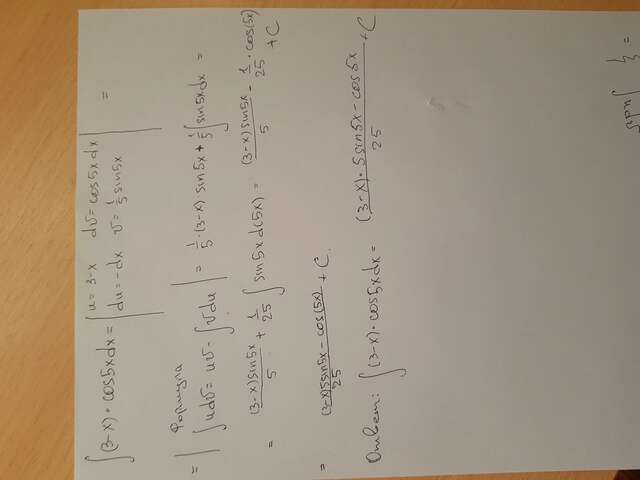 ∫(3-x)·cos5xdx = | u = 3-x dv = cos5xdx | =
| du = -dx v = 1/5 sin5x |
Формула
= | ∫udv = uv - ∫vdu | = 1/5·(3-x)·sin5x + 1/5∫sin5xdx =
= (3-x)sin5x/5 + 1/25 ∫sin5xd(5x) = (3-x)sin5x/5 - 1/25·cos(5x)
+ C
= (3-x)5sin5x - cos(5x)/25 + C.
Ответ: ∫(3-x)·cos5xdx = (3-x)·5sin5x - cos5x/25 + C